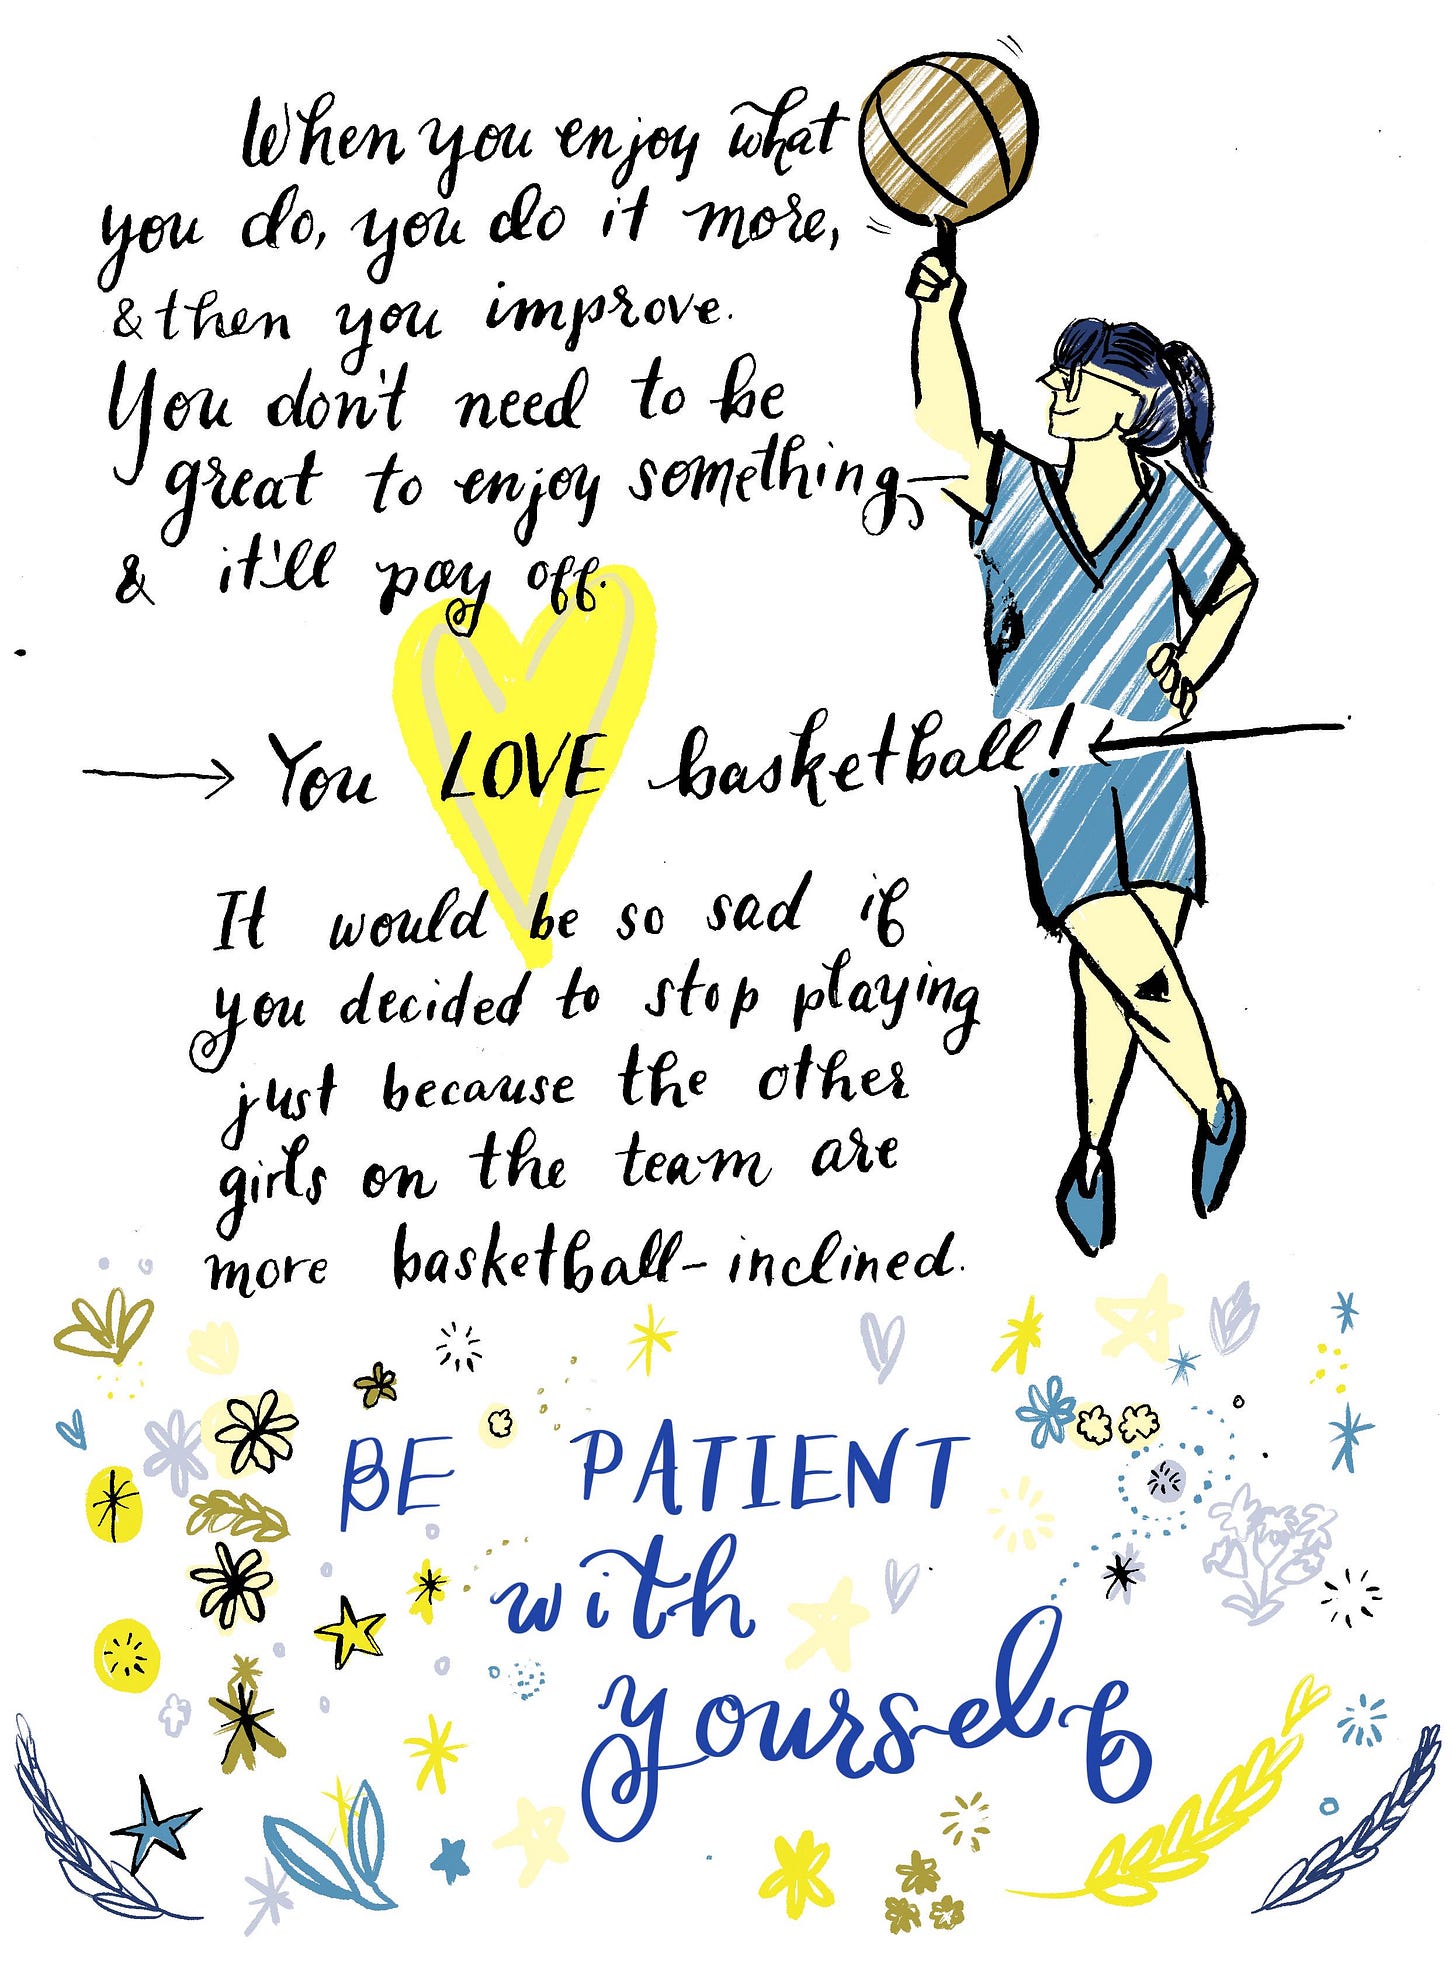 When you enjoy what
you do, you do it more,
& then you improve.
You don't need to be
great to enjoy something—
& it'll pay off.
You LOVE basketball!
It would be so sad if
you decided to stop playing
just because the other
girls on the team are
more basketball-inclined.
BE PATIENT
with
yourself